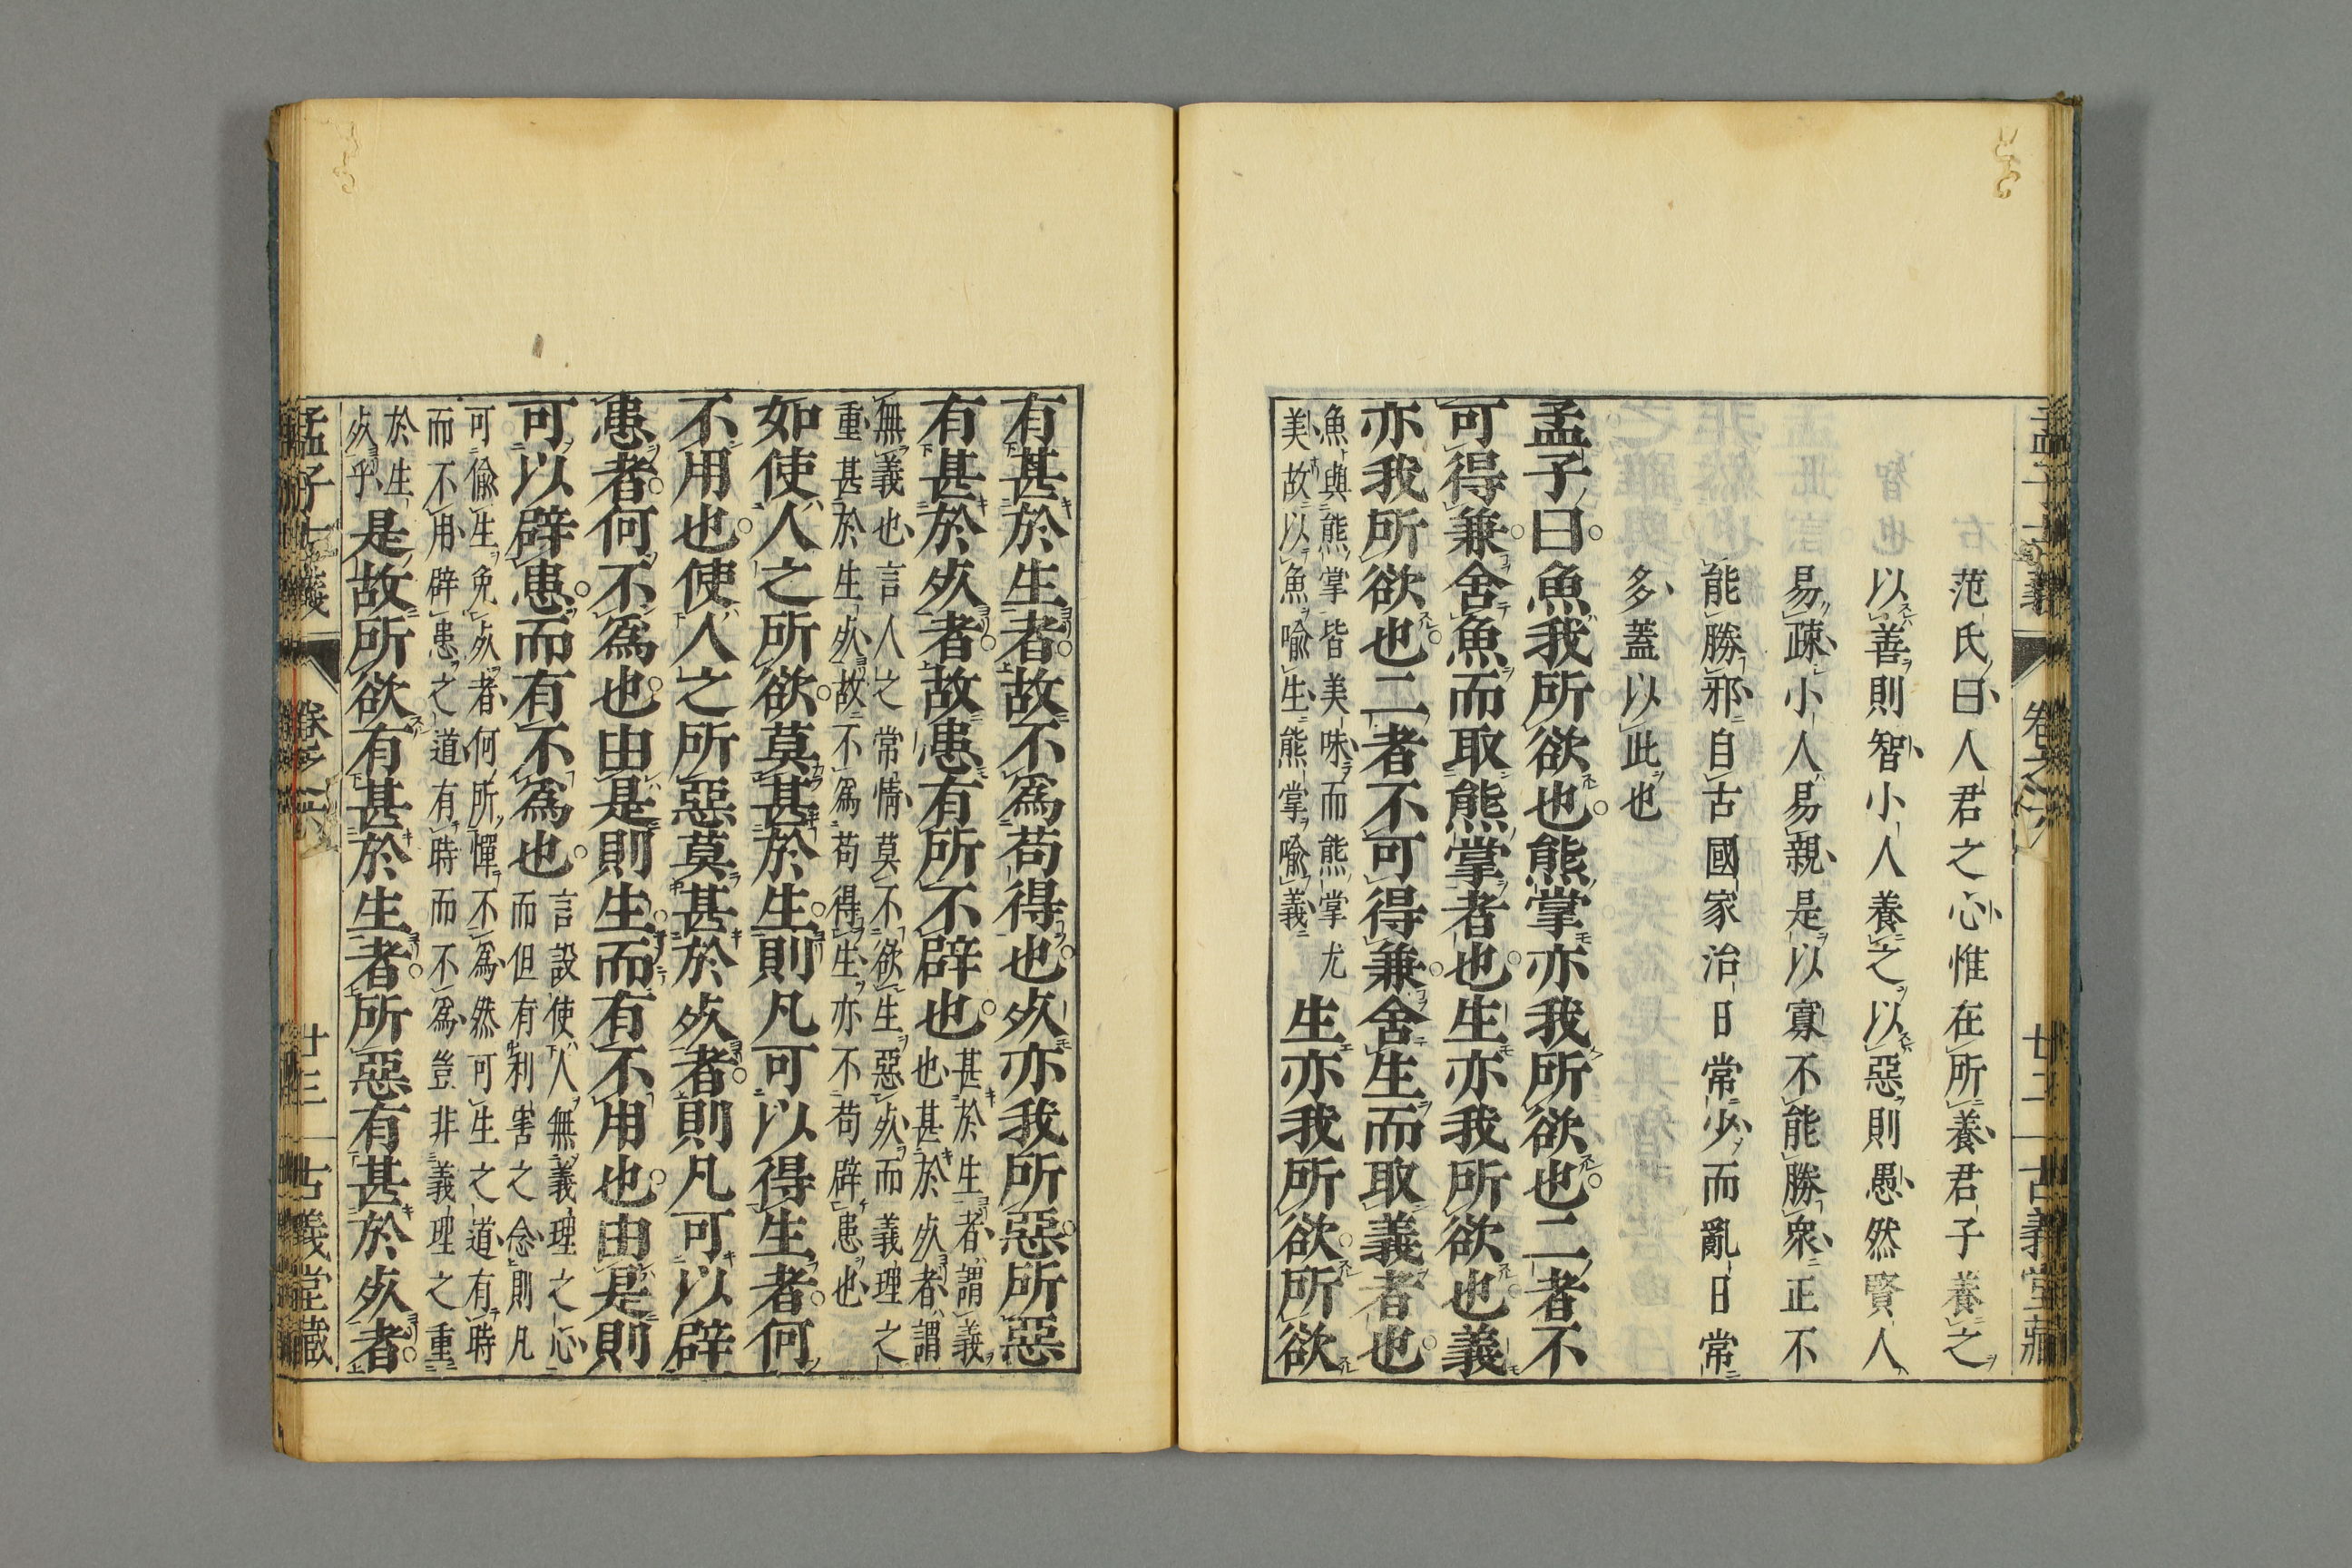 范氏曰人君之心惟在所養君子養之
以善則智小人養之以惡則愚然賢人
易疎小人易親是以寡不能勝衆正不
能勝邪自古國家治日常少而亂日常
多蓋以此也
孟子曰魚我所欲也熊掌亦我所欲也二者不
可得兼舍魚而取熊掌者也生亦我所欲也義
亦我所欲也二者不可得兼舍生而取義者也
魚與熊掌皆美味而熊掌尤
美故以魚喩生熊掌喩義
生亦我所欲所欲
有甚於生者故不爲苟得也死亦我所惡所惡
有甚於死者故患有所不辟也
甚於生者謂義
也甚於死者謂
無義也言人之常情莫不欲生惡死而義理之
重甚於生死故不爲苟得生亦不苟辟患也
如使人之所欲莫甚於生則凡可以得生者何
不用也使人之所惡莫甚於死者則凡可以辟
患者何不爲也由是則生而有不用也由是則
可以辟患而有不爲也
言設使人無義理之心
而但有利害之念則凡
可偸生免死者何所憚不爲然可生之道有時
而不用辟患之道有時而不爲豈非義理之重
於生
死乎
是故所欲有甚於生者所惡有甚於死者
孟子古義
卷之六
廿三
古義堂藏